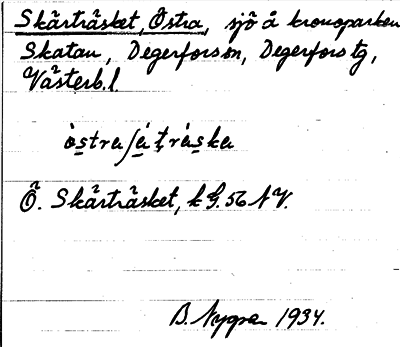 Skärträsket, Östra, sjö å kronoparken
Skatan, Degerfors sn, Degerfors tg,
Västerb. l.
Ö. Skärträsket, k G. 56 NV.
B. Nygren 1934.